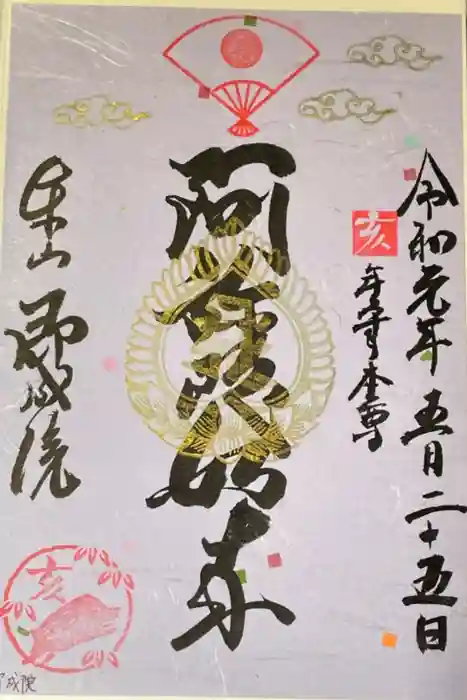 令和元年五月二十五日
亥
年守本尊
阿弥陀如来
東山 即成院
亥
成院